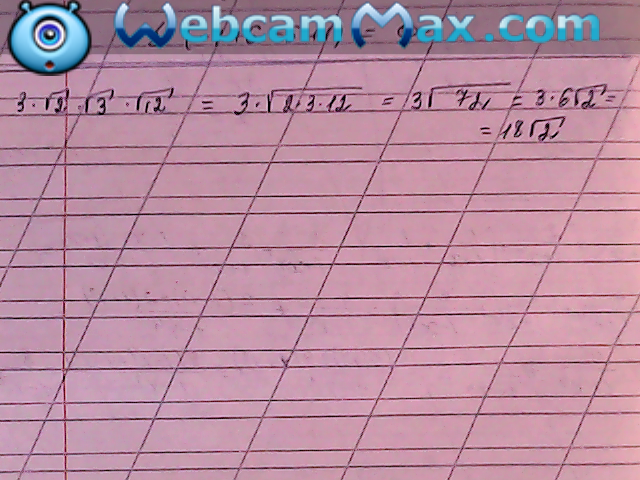 WebcamMax.com
3·√2·√3·√12 = 3·√2·3·12 = 3√72 = 3·6√2 =
= 18√2